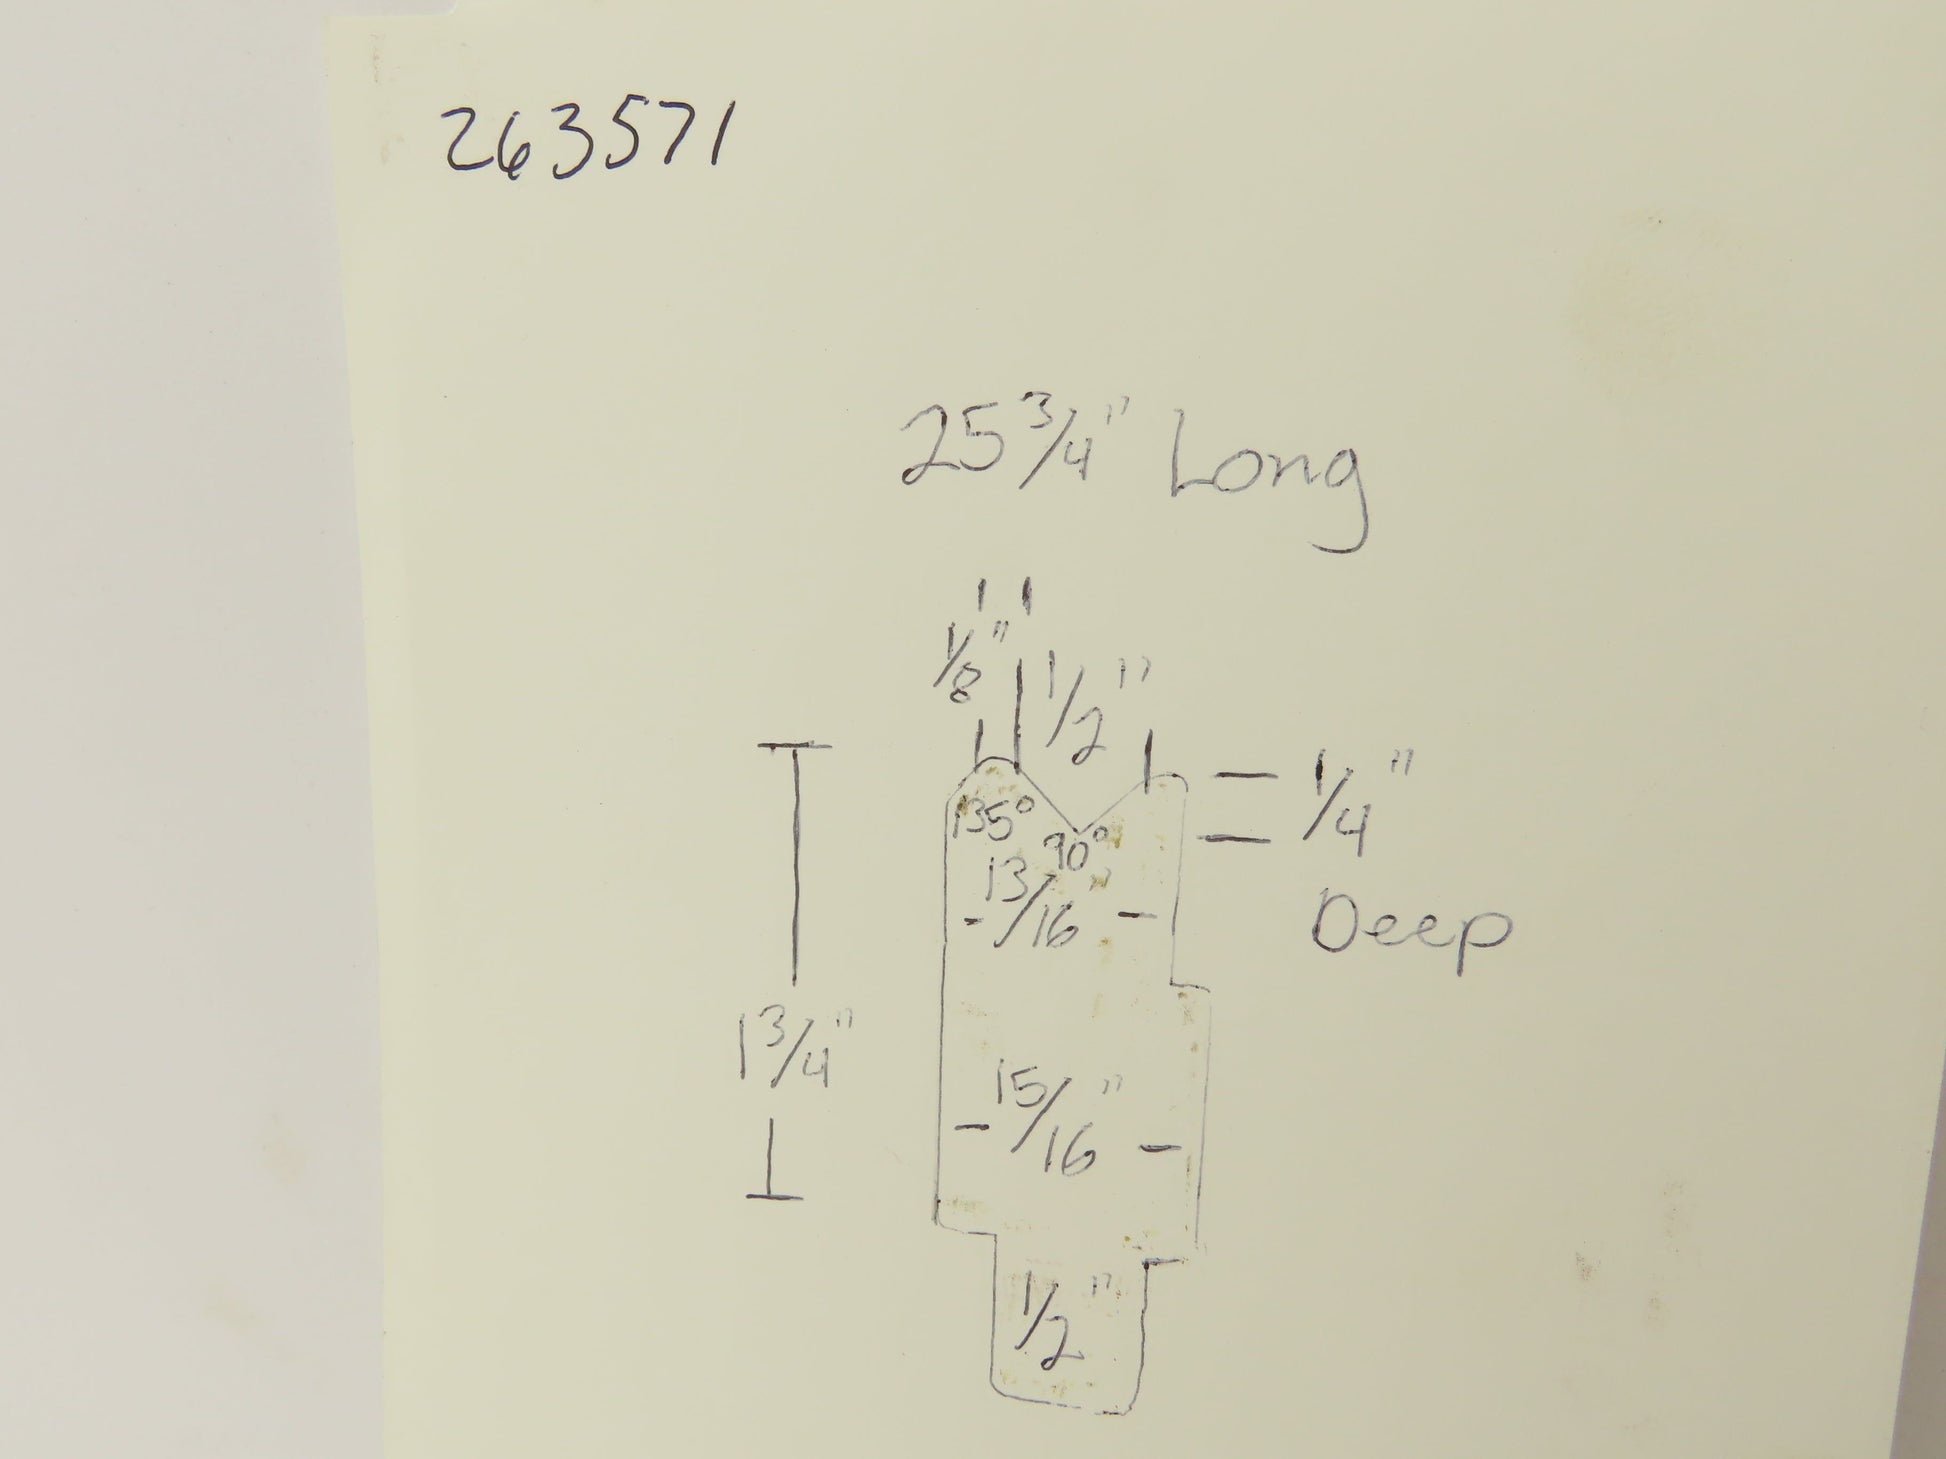 263571
25 3/4" Long
1/8"
1/2"
1/4"
Deep
135°
90°
13/16"
1 3/4"
15/16"
1/2"